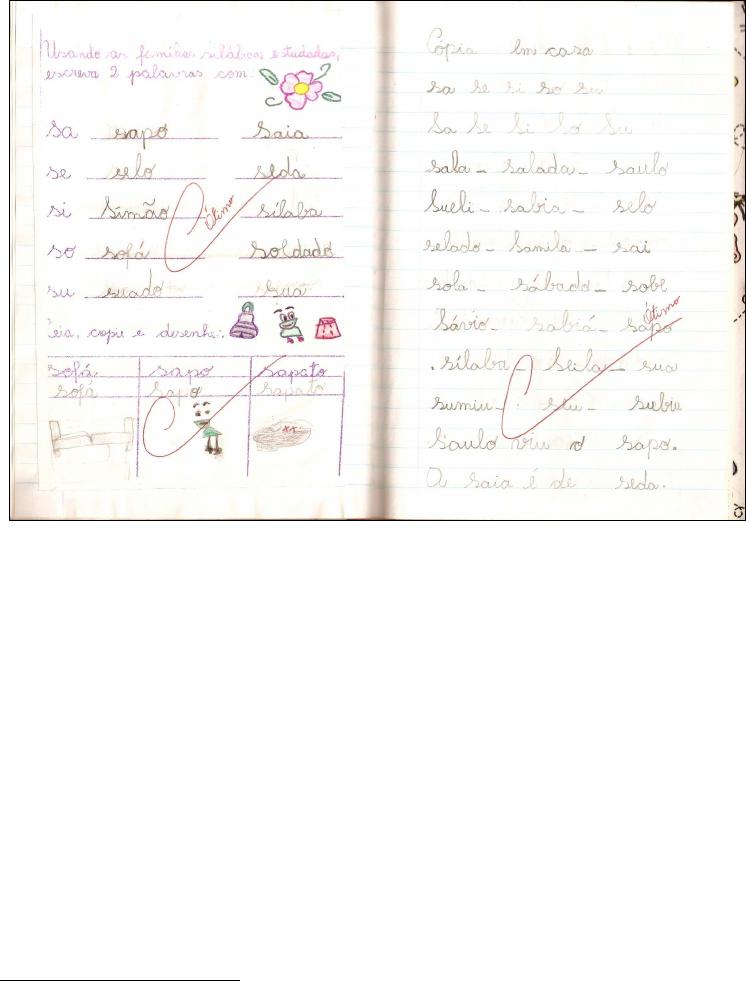 Usando as famílias silábicas estudadas,
escreva 2 palavras com:
sa sapo saia
se selo seda
si Simão sílaba
Ótimo
so sofá soldado
su suado sua
eia, copie e desenhe:
sofá sapo sapato
sofá sapo sapato
Cópia Em casa
sa se si so su
Sa Se Si So Su
sala - salada - saulo
Sueli - sabia - selo
selado - Samila - sai
sola - sábado - sobe
Ótimo
Sávio - sabiá - sapo
sílaba - Seila - sua
sumiu - seu - subiu
Saulo viu o sapo.
A saia é de seda.